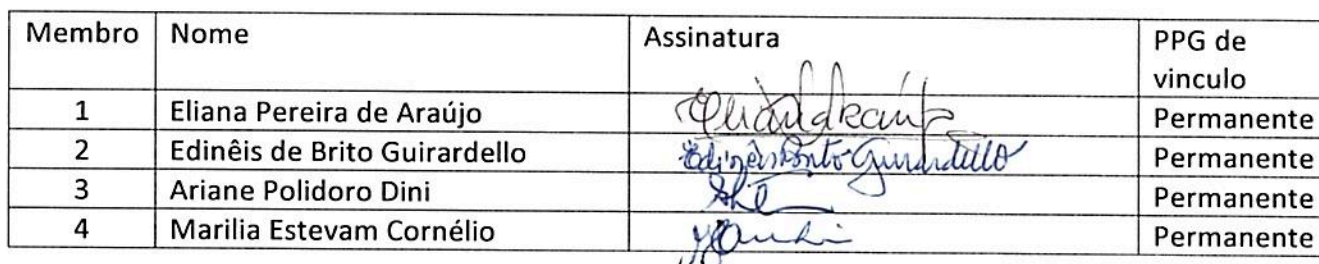 Membro Nome Assinatura PPG de
vinculo
1 Eliana Pereira de Araújo Permanente
2 Edinêis de Brito Guirardello Edinêis Brito Guirardello Permanente
3 Ariane Polidoro Dini Permanente
4 Marilia Estevam Cornélio Permanente